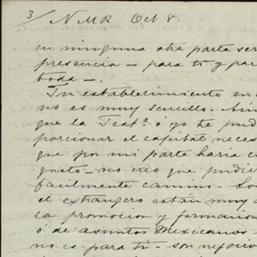 3/ N.M.R Oct 8.
en ninguna otra parte ser
presencia — para ti y par
toda —.
Tu establecimiento en
no es muy sencillo.
que la Testa. ó yo te pud
porcionar el capital neces
que por mi parte haria c
gusto — no creo que pudie
facilmente camino.
el extrangero estan muy
ca promocion y formacion
ó de asuntos Mexicanos
no es para ti — son negocio